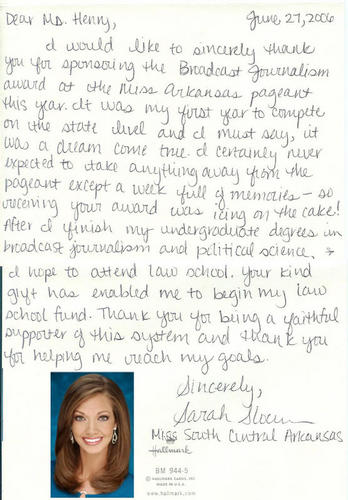 Dear Ms. Henry,
June 27, 2006
I would like to sincerely thank
you for sponsoring the Broadcast Journalism
award at the Miss Arkansas pageant
this year. It was my first year to compete
on the state level and I must say, it
was a dream come true. I certainly never
expected to take anything away from the
pageant except a week full of memories - so
receiving your award was icing on the cake!
After I finish my undergraduate degrees in
broadcast journalism and political science,
I hope to attend law school. Your kind
gift has enabled me to begin my law
school fund. Thank you for being a faithful
supporter of this system and thank you
for helping me reach my goals.
Sincerely,
Sarah Slocum
Miss South Central Arkansas
Hallmark
BM 944-5
© HALLMARK CARDS, INC.
MADE IN U.S.A.
www.hallmark.com